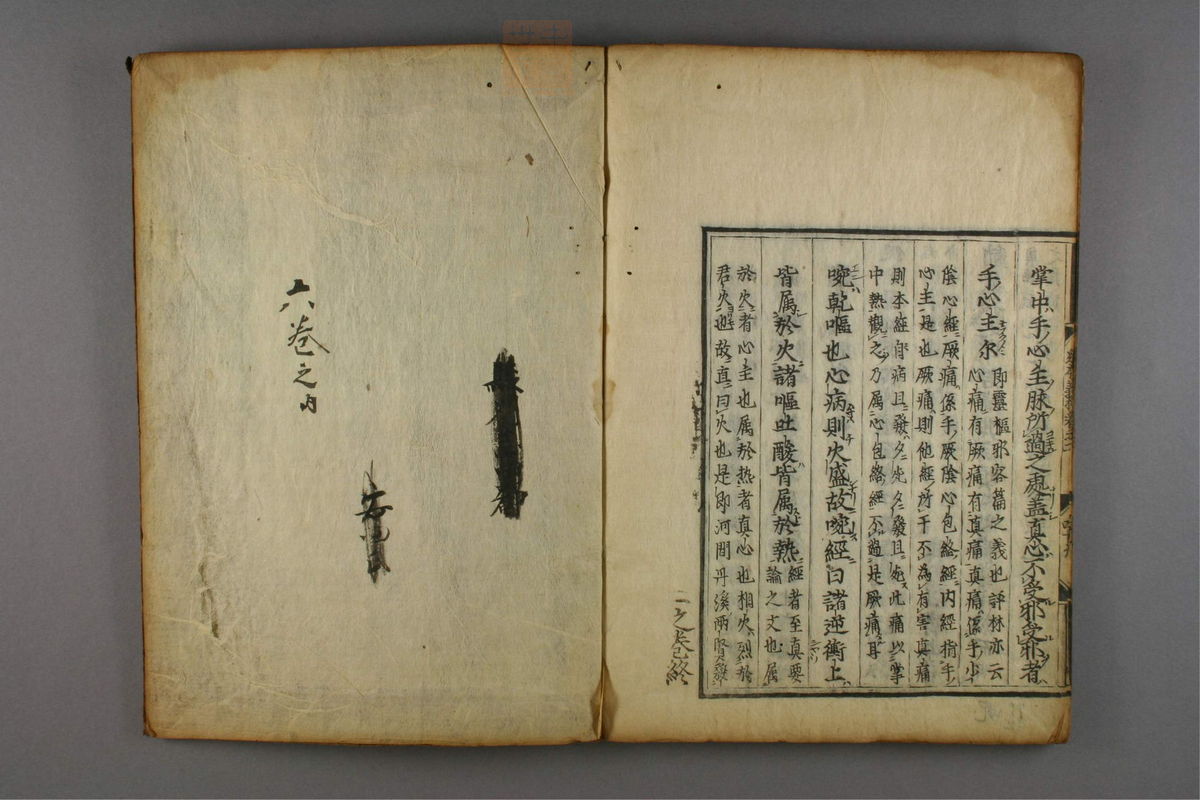 掌中手心主脉所過之處盖真心不受邪受邪者
手心主尔即靈樞邪客篇之義也評林亦云
心痛有厥痛有真痛真痛係手少
陰心經厥痛係手厥陰心包絡經内經指手
心主是也厥痛則他經所干不為有害真痛
則本經自病且發夕死夕發且死此痛以掌
中熱觀之乃属心包絡經不過是厥痛耳
啘乾嘔也心病則火盛故啘經曰諸逆衝上
皆属於火諸嘔吐酸皆属於熱經者至真要
論之文也属
於火者心主也属於热者真心也相火烈於
君火也故真曰火也是即河間丹溪兩賢發
一之巻終
六巻之内